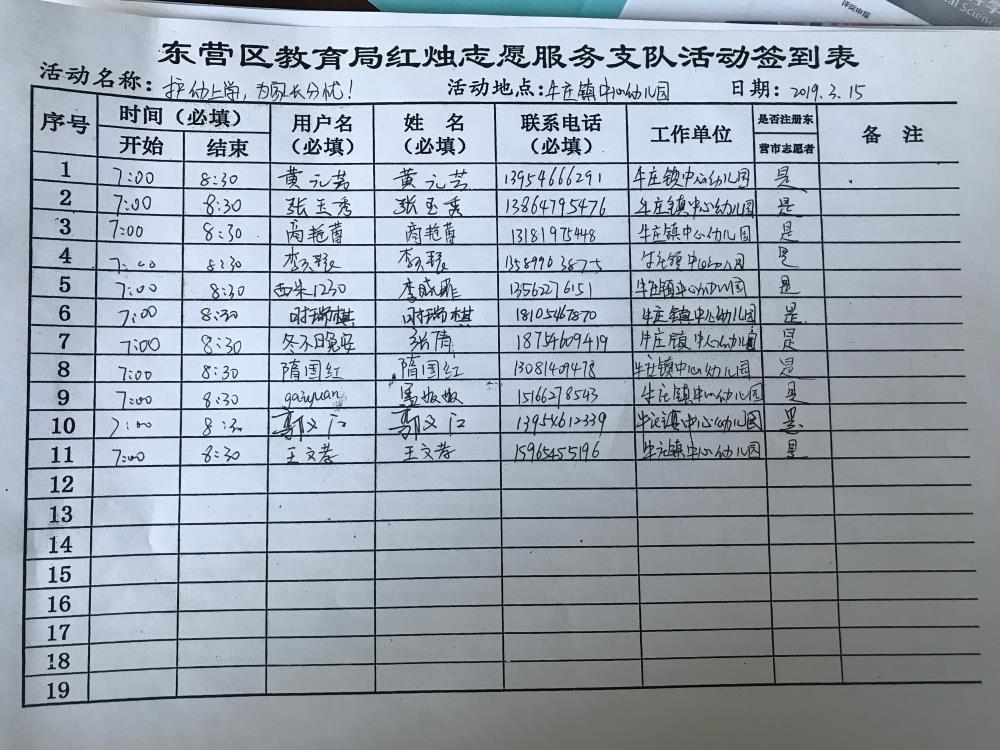 东营区教育局红烛志愿服务支队活动签到表
活动名称：护幼上学，为家长分忧！ 活动地点：牛庄镇中心幼儿园 日期：2019.3.15
序号 时间（必填） 用户名（必填） 姓 名（必填） 联系电话（必填） 工作单位 是否注册东营市志愿者 备 注
开始 结束
1 7:00 8:30 黄元芸 黄元芸 13954666291 牛庄镇中心幼儿园 是
2 7:00 8:30 张玉秀 张玉秀 13864795476 牛庄镇中心幼儿园 是
3 7:00 8:30 商艳蕾 商艳蕾 13181975448 牛庄镇中心幼儿园 是
4 7:00 8:30 13589903875 牛庄镇中心幼儿园 是
5 7:00 8:30 西米1230 李 13562276151 牛庄镇中心幼儿园 是
6 7:00 8:30 时瑞棋 时瑞棋 18105467870 牛庄镇中心幼儿园 是
7 7:00 8:30 冬不晚安 张倩 18754609419 牛庄镇中心幼儿园 是
8 7:00 8:30 隋国红 隋国红 13081409478 牛庄镇中心幼儿园 是
9 7:00 8:30 15166278543 牛庄镇中心幼儿园 是
10 7:00 8:30 郭文江 郭文江 13954612339 牛庄镇中心幼儿园 是
11 7:00 8:30 王文孝 王文孝 15965455196 牛庄镇中心幼儿园 是
12
13
14
15
16
17
18
19